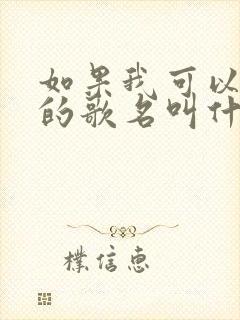 如果我可以
的歌名叫什
樸信惠